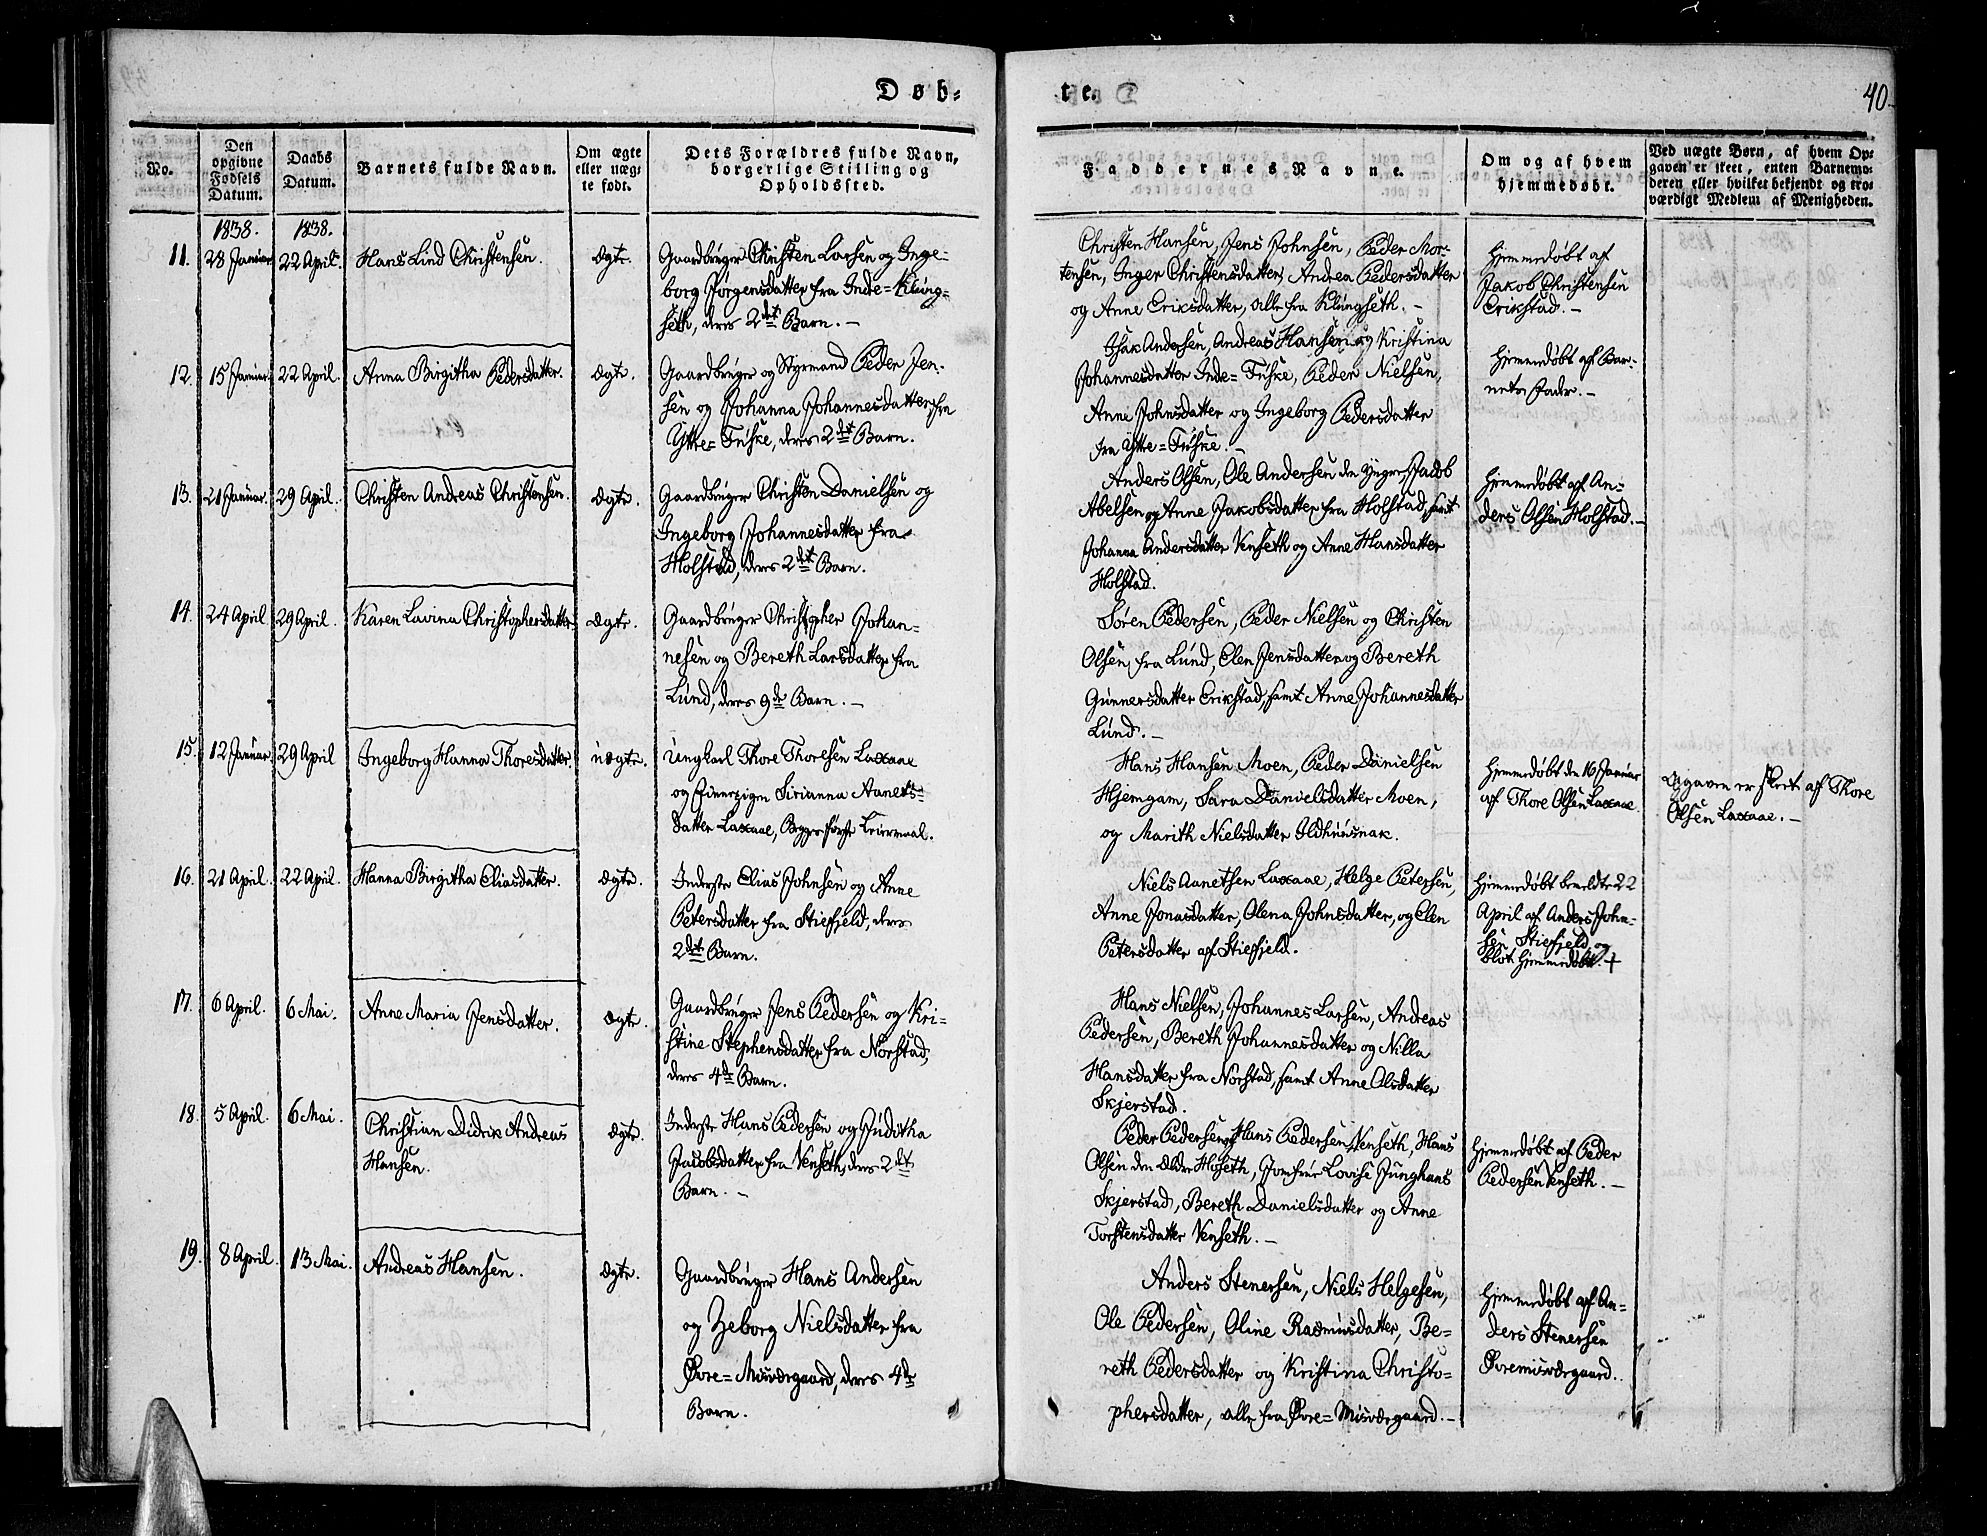 Døb=
te.
40.
No.
Den
opgivne
Fødsels
Datum.
Daabs
Datum.
Barnets fulde Navn.
Om ægte
eller uæg-
te født.
Dets Forældres fulde Navn,
borgerlige Stilling og
Opholdssted.
Faddernes Navne.
Om og af hvem
hjemmedøbt.
Ved uægte Børn, af hvem Op-
gaven er skeet, enten Barnemo-
deren eller hvilket bekjendt og tro-
værdigt Medlem af Menigheden.
1838. 1838.
11. 28 Januar 22 April. Hans Lind Christensen. Ægte.
Gaardbruger Christen Larsen og Inge-
borg Jørgensdatter fra Inde=Klung-
seth, deres 2det Barn. -
Christen Hansen, Jens Johnsen, Peder Mor-
tensen, Inger Christensdatter, Andrea Pedersdatter
og Anne Eriksdatter, alle fra Klungseth. -
Hjemmedøbt af
Jakob Christensen
Erikstad. -
12. 15 Januar 22 April. Anna Birgitha Pedersdatter. Ægte.
Gaardbruger og Styrmand Peder Jen-
sen og Johanna Johannesdatter fra
Ytre=Fuske, deres 2det Barn.
Isak Andersen, Andreas Hansen og Kristina
Johannesdatter Inde=Fuske, Peder Nielsen,
Anne Johnsdatter og Ingeborg Pedersdatter
fra Ytre=Fuske. -
Hjemmedøbt af Bar-
nets Fader. -
13. 21 Januar. 29 April. Christen Andreas Christensen. Ægte.
Gaardbruger Christen Danielsen og
Ingeborg Johannesdatter fra
Holstad, deres 2det Barn.
Anders Olsen, Ole Andersen den yngre, Jacob
Abelsen og Anne Jakobsdatter fra Holstad, samt
Johanna Andersdatter Venseth og Anne Hansdatter
Holstad.
Hjemmedøbt af An-
ders Olsen Holstad. -
14. 24 April 29 April. Karen Lavina Christophersdatter Ægte.
Gaardbruger Christopher Johan-
nesen og Bereth Larsdatter fra
Lund, deres 9de Barn. -
Søren Pedersen, Peder Nielsen og Christen
Olsen fra Lund, Elen Jensdatter og Bereth
Gunnersdatter Erikstad, samt Anne Johannesdatter
Lund. -
15. 12 Januar. 29 April Ingeborg Hanna Thoresdatter. uægte.
Ungkarl Thore Thoresen Laxaae
og Sirianna Aanets-
datter Laxaae, Begges første Leiermaal.
Hans Hansen Moen, Peder Danielsen
Hjemgam, Sara Danielsdatter Moen,
og Marith Nielsdatter Oldhuusnak.
Hjemmedøbt den 16 Januar
af Thore Olsen Laxaae
Opgaven er skeet af Thore
Olsen Laxaae. -
16. 21 April. 22 April. Hanna Birgitha Eliasdatter. Ægte.
Inderste Elias Johnsen og Anne
Petersdatter fra Stiefjeld, deres
2det Barn.
Niels Aanetsen Laxaae, Helge Petersen,
Anne Jonasdatter, Olena Johnsdatter, og Elen
Petersdatter af Stiefjeld.
Hjemmedøbt 22
April af Anders John-
sen Stiefjeld og
blot hjemmedøbt. +
17. 6 April. 6 Mai. Anne Maria Jensdatter. Ægte.
Gaardbruger Jens Pedersen og Kri-
stine Stephensdatter fra Norstad,
deres 4de Barn.
Hans Nielsen, Johannes Larsen, Andreas
Pedersen, Bereth Johannesdatter og Nilla
Hansdatter fra Norstad, samt Anne Olsdatter
Skjerstad.
18. 5 April. 6 Mai. Christian Didrik Andreas
Hansen. Ægte.
Inderste Hans Pedersen og Juditha
Jacobsdatter fra Venseth, deres 2det
Barn. -
Peder Pedersen og Hans Pedersen Venseth, Hans
Olsen den Ældre Hoseth, Jomfrue Lovise Junghans
Skjerstad, Bereth Danielsdatter og Anne
Torstensdatter Venseth. -
Hjemmedøbt af Peder
Pedersen Venseth. -
19. 8 April. 13 Mai. Andreas Hansen. Ægte.
Gaardbruger Hans Andersen
og Zeborg Nielsdatter fra
Øvre=Misværgaard, deres 4de
Barn.
Anders Stenersen, Niels Helgesen,
Ole Pedersen, Oline Rasmusdatter, Be-
reth Pedersdatter og Kristina Christo-
phersdatter, alle fra Øvre=Misværgaard. -
Hjemmedøbt af An-
ders Stenersen
Øvremisværgaard.